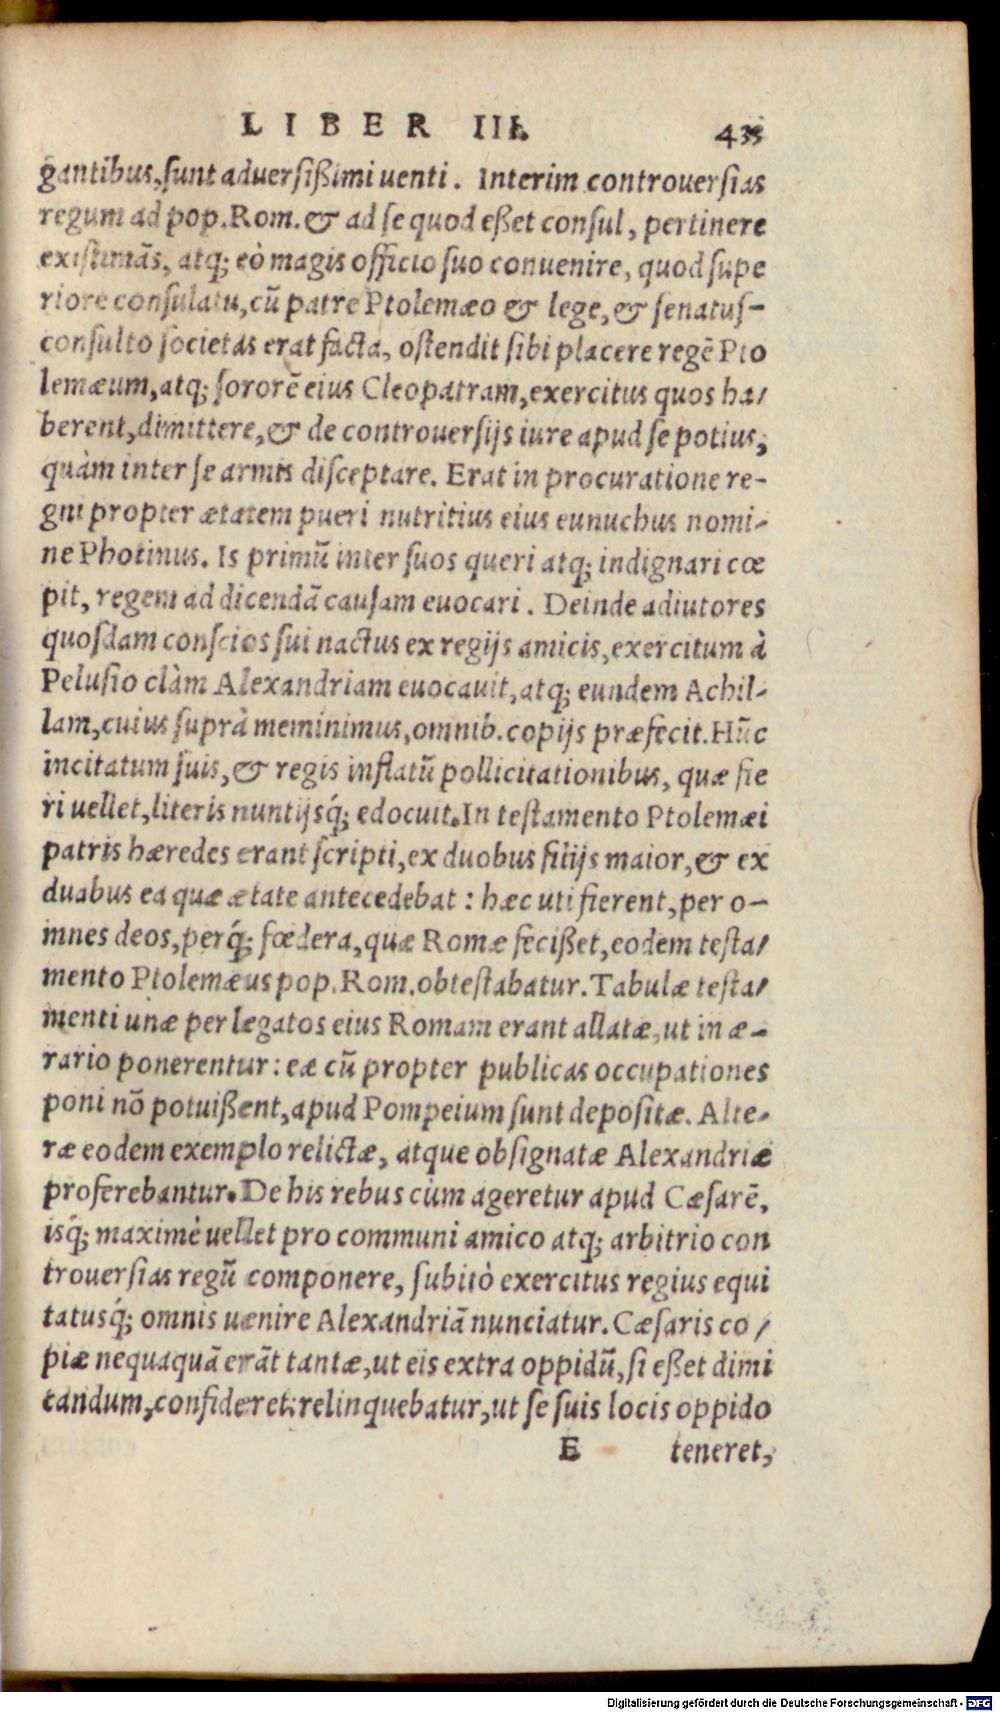 LIBER III. 433
gantibus, sunt aduersißimi uenti. Interim controuersias
regum ad pop. Rom. & ad se quod eßet consul, pertinere
existimãs, atq; eò magis officio suo conuenire, quod supe
riore consulatu, cũ patre Ptolemæo & lege, & senatus-
consulto societas erat facta, ostendit sibi placere regẽ Pto
lemæum, atq; sororẽ eius Cleopatram, exercitus quos ha/
berent, dimittere, & de controuersijs iure apud se potius,
quàm inter se armis disceptare. Erat in procuratione re-
gni propter ætatem pueri nutritius eius eunuchus nomi-
ne Photinus. Is primũ inter suos queri atq; indignari cœ
pit, regem ad dicendã causam euocari. Deinde adiutores
quosdam conscios sui nactus ex regijs amicis, exercitum à
Pelusio clàm Alexandriam euocauit, atq; eundem Achil-
lam, cuius suprà meminimus, omnib. copijs præfecit. Hũc
incitatum suis, & regis inflatũ pollicitationibus, quæ fie
ri uellet, literis nuntijsq́; edocuit. In testamento Ptolemæi
patris hæredes erant scripti, ex duobus filijs maior, & ex
duabus ea quæ ætate antecedebat : hæc uti fierent, per o-
mnes deos, perq́; fœdera, quæ Romæ fecißet, eodem testa/
mento Ptolemæus pop. Rom. obtestabatur. Tabulæ testa/
menti unæ per legatos eius Romam erant allatæ, ut in æ-
rario ponerentur: eæ cũ propter publicas occupationes
poni nõ potuißent, apud Pompeium sunt depositæ. Alte-
ræ eodem exemplo relictæ, atque obsignatæ Alexandriæ
proferebantur. De his rebus cùm ageretur apud Cæsarẽ,
isq́; maximè uellet pro communi amico atq; arbitrio con
trouersias regũ componere, subitò exercitus regius equi
tatusq́; omnis uænire Alexandriã nunciatur. Cæsaris co/
piæ nequaquã erãt tantæ, ut eis extra oppidũ, si eßet dimi
candum, confideret: relinquebatur, ut se suis locis oppido
E teneret,
Digitalisierung gefördert durch die Deutsche Forschungsgemeinschaft - DFG